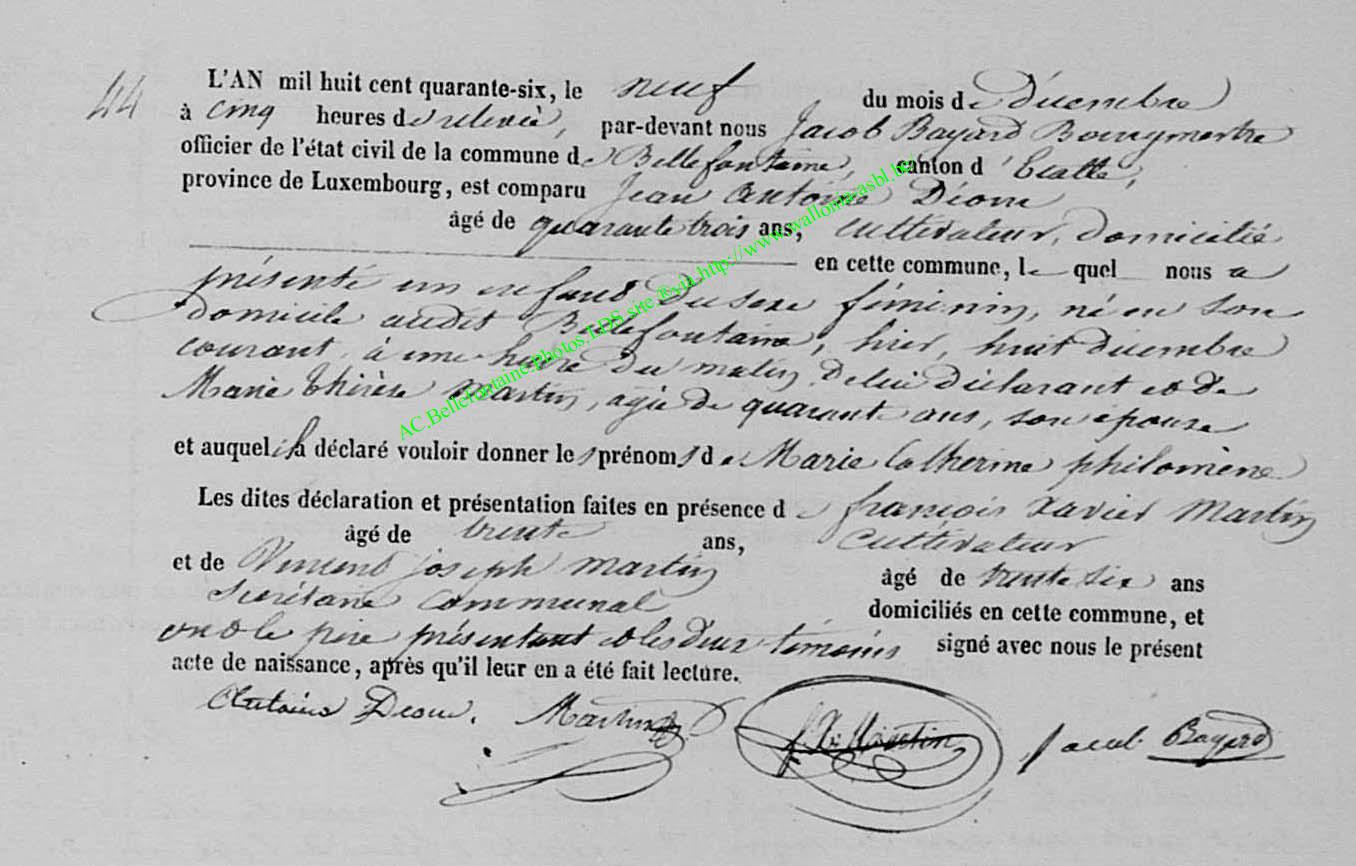 44
L'AN mil huit cent quarante-six, le neuf du mois de décembre
à cinq heures de relevée, par-devant nous Jacob Bayard Bourgmestre
officier de l'état civil de la commune de Bellefontaine, canton d'Etalle,
province de Luxembourg, est comparu Jean Antoine Dion
âgé de quarante trois ans, cultivateur, domicilié
en cette commune, le quel nous a
présenté un enfant du sexe féminin, né en son
domicile audit Bellefontaine, hier, huit décembre
courant, à une heure du matin, de lui déclarant et de
Marie thérèse Martin, agée de quarant ans, son épouse
et auquel il a déclaré vouloir donner les prénoms de Marie Catherine philomène
Les dites déclaration et présentation faites en présence de françois Xavier Martin
âgé de trente ans, cultivateur
et de Vincent joseph martin âgé de trente six ans
Secrétaire communal domiciliés en cette commune, et
ont le père présentant et les deux témoins signé avec nous le présent
acte de naissance, après qu'il leur en a été fait lecture.
Antoine Dion. Martin f. X. Martin Jacob Bayard
AC.Bellefontaine.Photos.LDS.site via http://www.wallonia-asbl.be